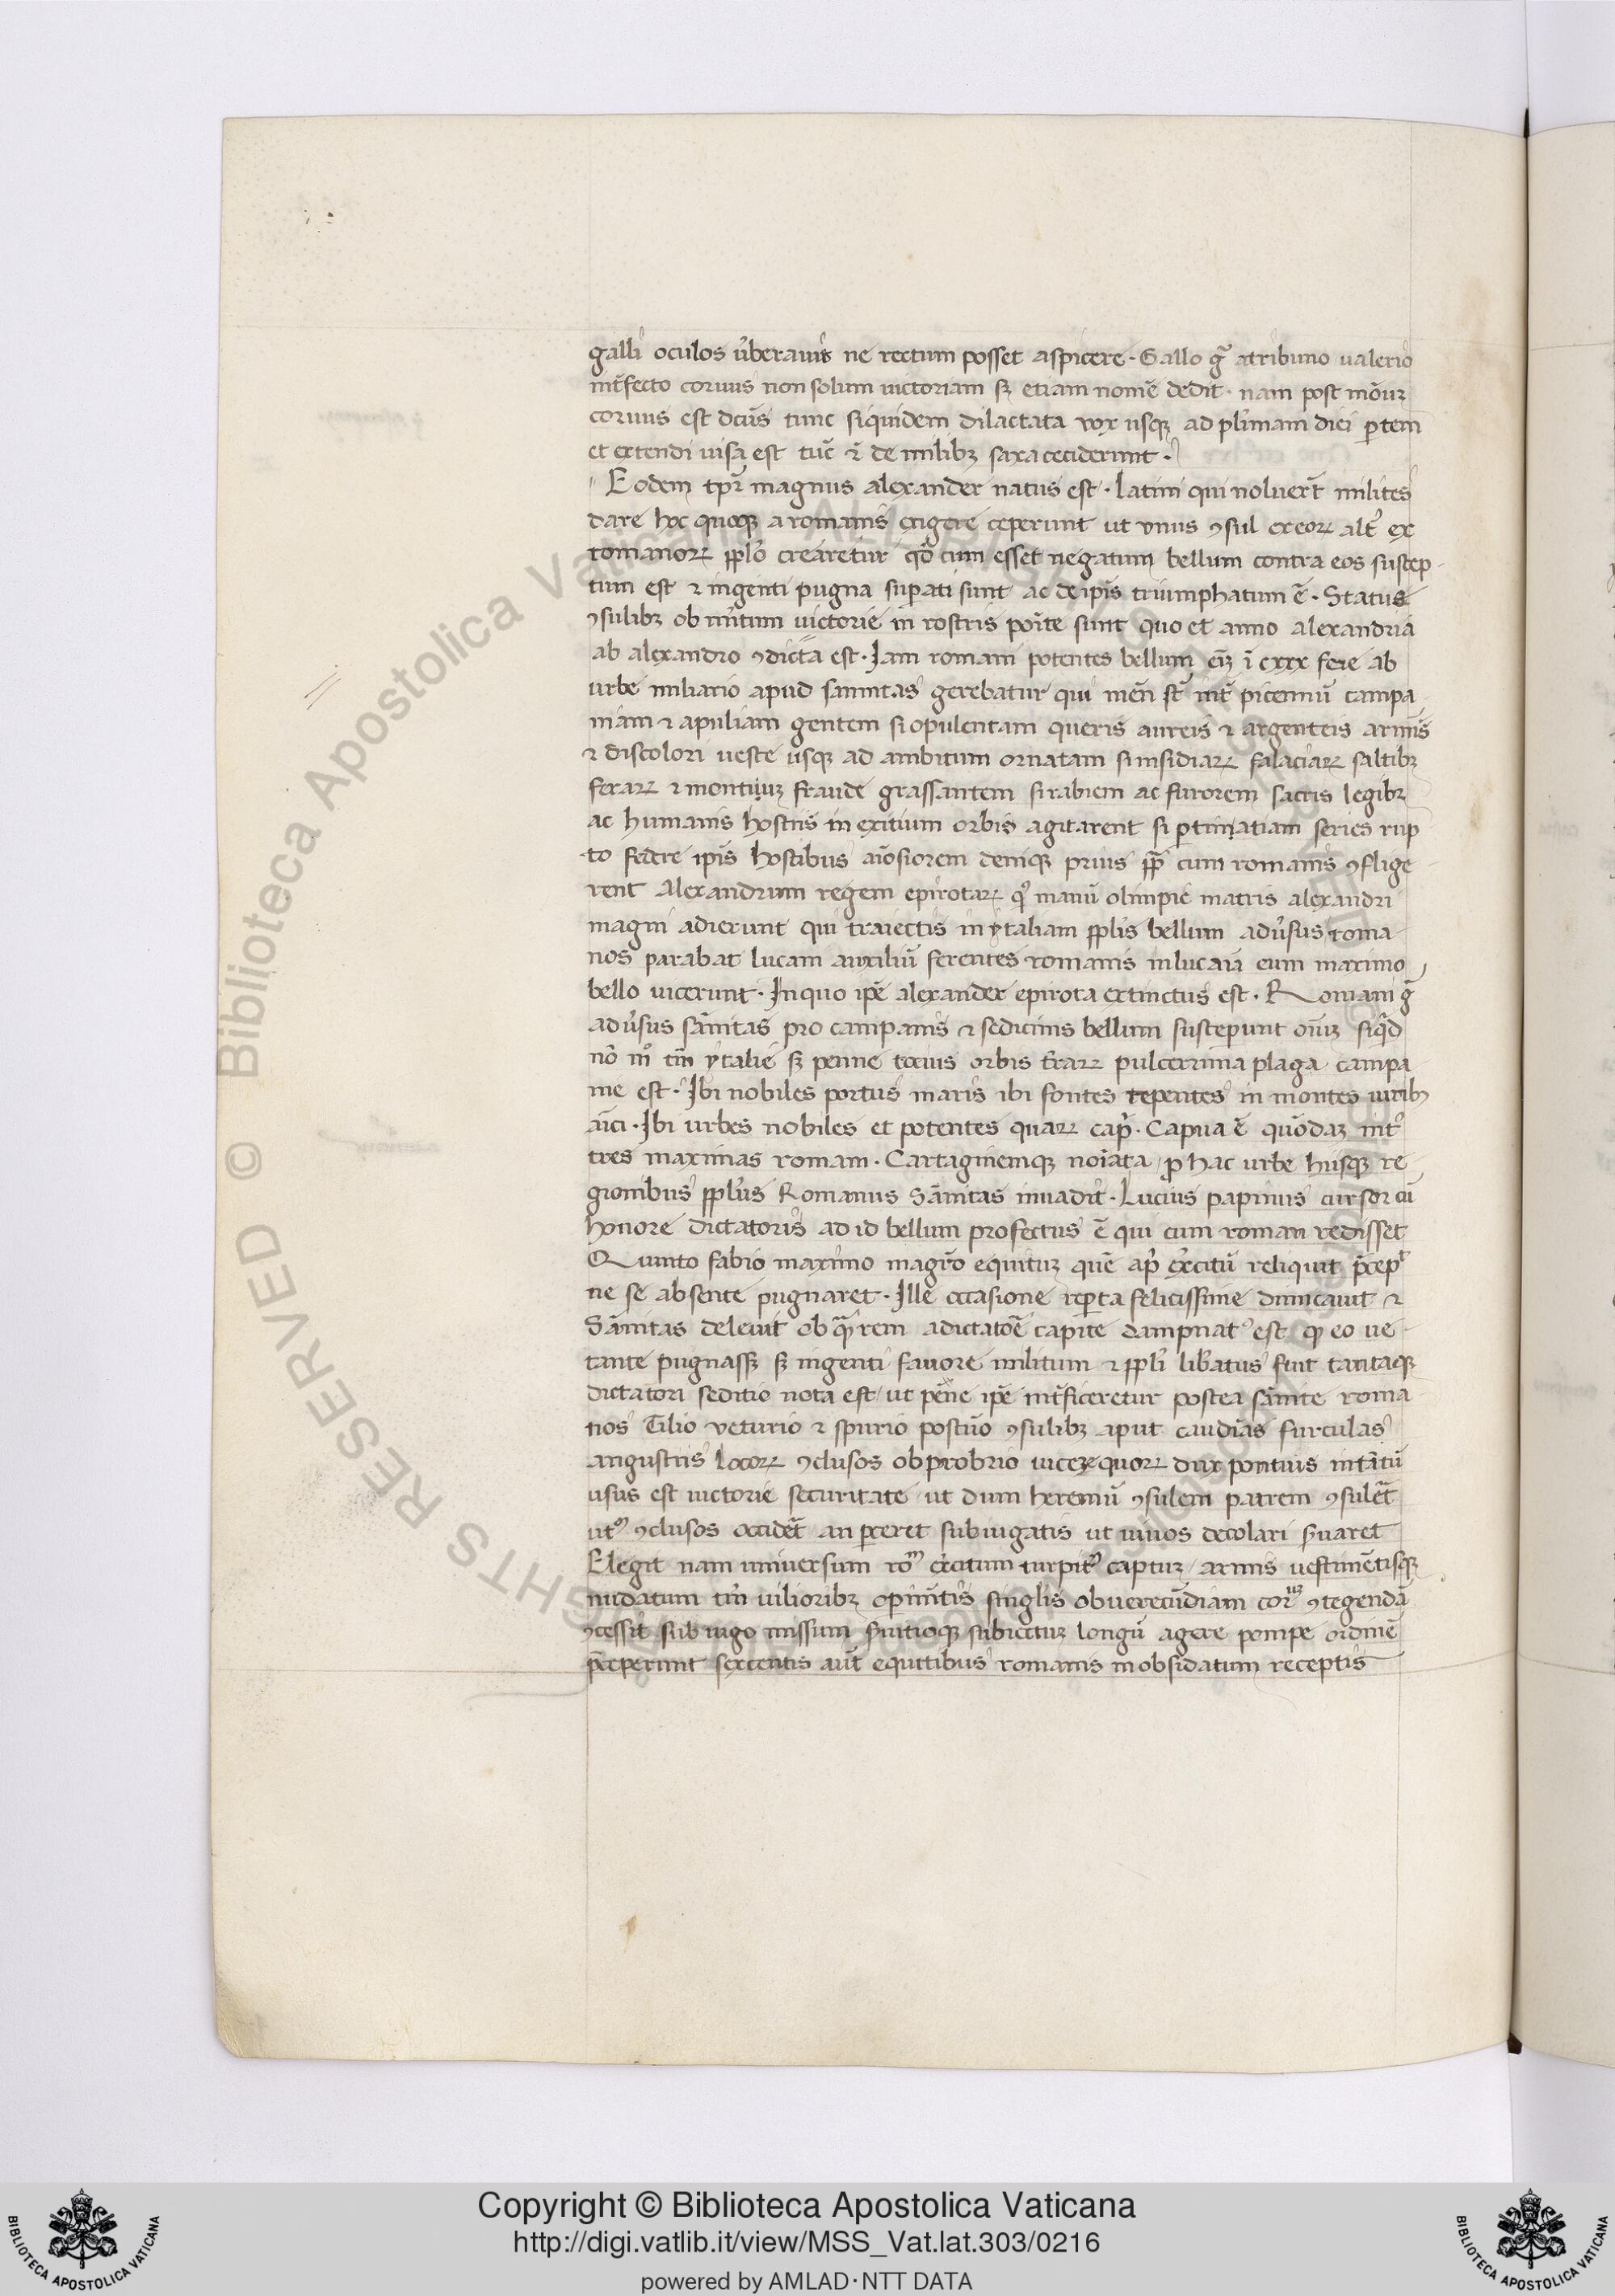 galli oculos ũberauit ne rectum posset aspicere · Gallo gͣ atribuno ualerio
int̃fecto coruus non solum uictoriam sꝫ etiam nomẽ dedit · nam post
coruus est dcũs tunc siquidem dilactata nox usqꝫ ad plimam diei ꝑtem
et extendi uisa est tũc ⁊ de nubibꝫ saxa ceciderunt ·
Eodem tp̃r magnus alexander natus est · latini qui noluer̃t milites
dare hoc quoqꝫ a romanis exigere ceperunt ut vnus ꝯsul ex eoꝝ alt̉ ex
romanoꝝ pplo crearetur qd̃ cum esset negatum bellum contra eos suscep
tum est ⁊ ingenti pugna suꝑati sunt ac de ip̃is triumphatum ẽ · Statue
ꝯsulibꝫ ob m̃itum uictorie in rostris poĩte sunt quo et anno alexandria
ab alexandro ꝯdicta est · Iam romani potentes bellum ĩ cxxx fere ab
urbe miliario apud samnitas gerebatur qui int̃ picenũ campa
niam ⁊ apuliam gentem si opulentam queris aureis ⁊ argenteis armis
⁊ discolori ueste usqꝫ ad ambitum ornatam si insidiaꝝ falaciaꝝ saltibꝫ
feraꝝ ⁊ montiuꝫ fraude grassantem si rabiem ac furorem sacris legibꝫ
ac humanis hostiis in exitium orbis agitarent si ꝑtinatiam series rup
to federe ip̃is hostibus aĩosiorem deniqꝫ prius cum romanis ꝯflige
rent Alexandrum regem epirotaꝝ manũ olimpie matris alexandri
magni adierunt qui traiectis in ytaliam pplis bellum aduersus roma
nos parabat lucani auxiliũ ferentes romanis in lucania eum maximo
bello uicerunt · In quo ip̃e alexander epirota extinctus est · Romani gͣ
adũsus sãnitas pro campanis ⁊ sedicinis bellum susceꝑunt siqͥd
nõ mͦ tm̃ ytalie sꝫ penne tocius orbis t̃raꝝ pulcerrima plaga campa
nie est · Ibi nobiles portus maris ibi fontes tepentes in montes uitibꝫ
aĩci · Ibi urbes nobiles et potentes quaꝝ cap̃ · Capua ẽ quõdaꝫ int̉
tres maximas romam · Cartaginemqꝫ noĩata ꝓ hac urbe hiisqꝫ re
gionibus pplus Romanus Sãnitas inuadit · Lucius papirius cursor cũ
honore dictatoris ad id bellum profectus ẽ qui cum roman redisset
Quinto fabio maximo magr̃o equituꝫ quẽ ap̃ ex̃citũ reliquit p̃cepͭ
ne se absente pugnaret · Ille occasione reꝑta felicissime dimicauit ⁊
Sãnitas deleuit ob qͣm rem adictatoẽ capite dampnatꝰ est qꝫ eo ue
tante pugnassꝫ sꝫ ingenti fauore militum ⁊ ppli libatus fuit tantaqꝫ
dictatori seditio nota est ut pẽne ip̃e int̃ficeretur postea sãnite roma
nos Tilio veturio ⁊ spurio postũo ꝯsulibꝫ aput caudĩas furculas
angustiis locoꝝ ꝯclusos obprobrio uicere quoꝝ dux pontius int̃itũ
usus est uictorie securitate ut dum heremũ ꝯsulem patrem ꝯsulẽt
utꝰ ꝯclusos occidẽt an ꝑceret subiugatis ut uiuos decolari s̃uaret
Elegit nam uniuersum roᵐ ex̃citum turpiͭ captuꝫ armis uestimẽtisqꝫ
nudatum tm̃ uilioribꝫ operim̃tis singlis ob uerecũdiam ꝯtegendã
ꝯcessit sub iugo missum s̃uitioqꝫ subiectuꝫ longũ agere pompe ordinẽ
p̃ceperunt sexcentis aũt equitibus romanis in obsidatum receptis
Copyright © Biblioteca Apostolica Vaticana
http://digi.vatlib.it/view/MSS_Vat.lat.303/0216
powered by AMLAD·NTT DATA